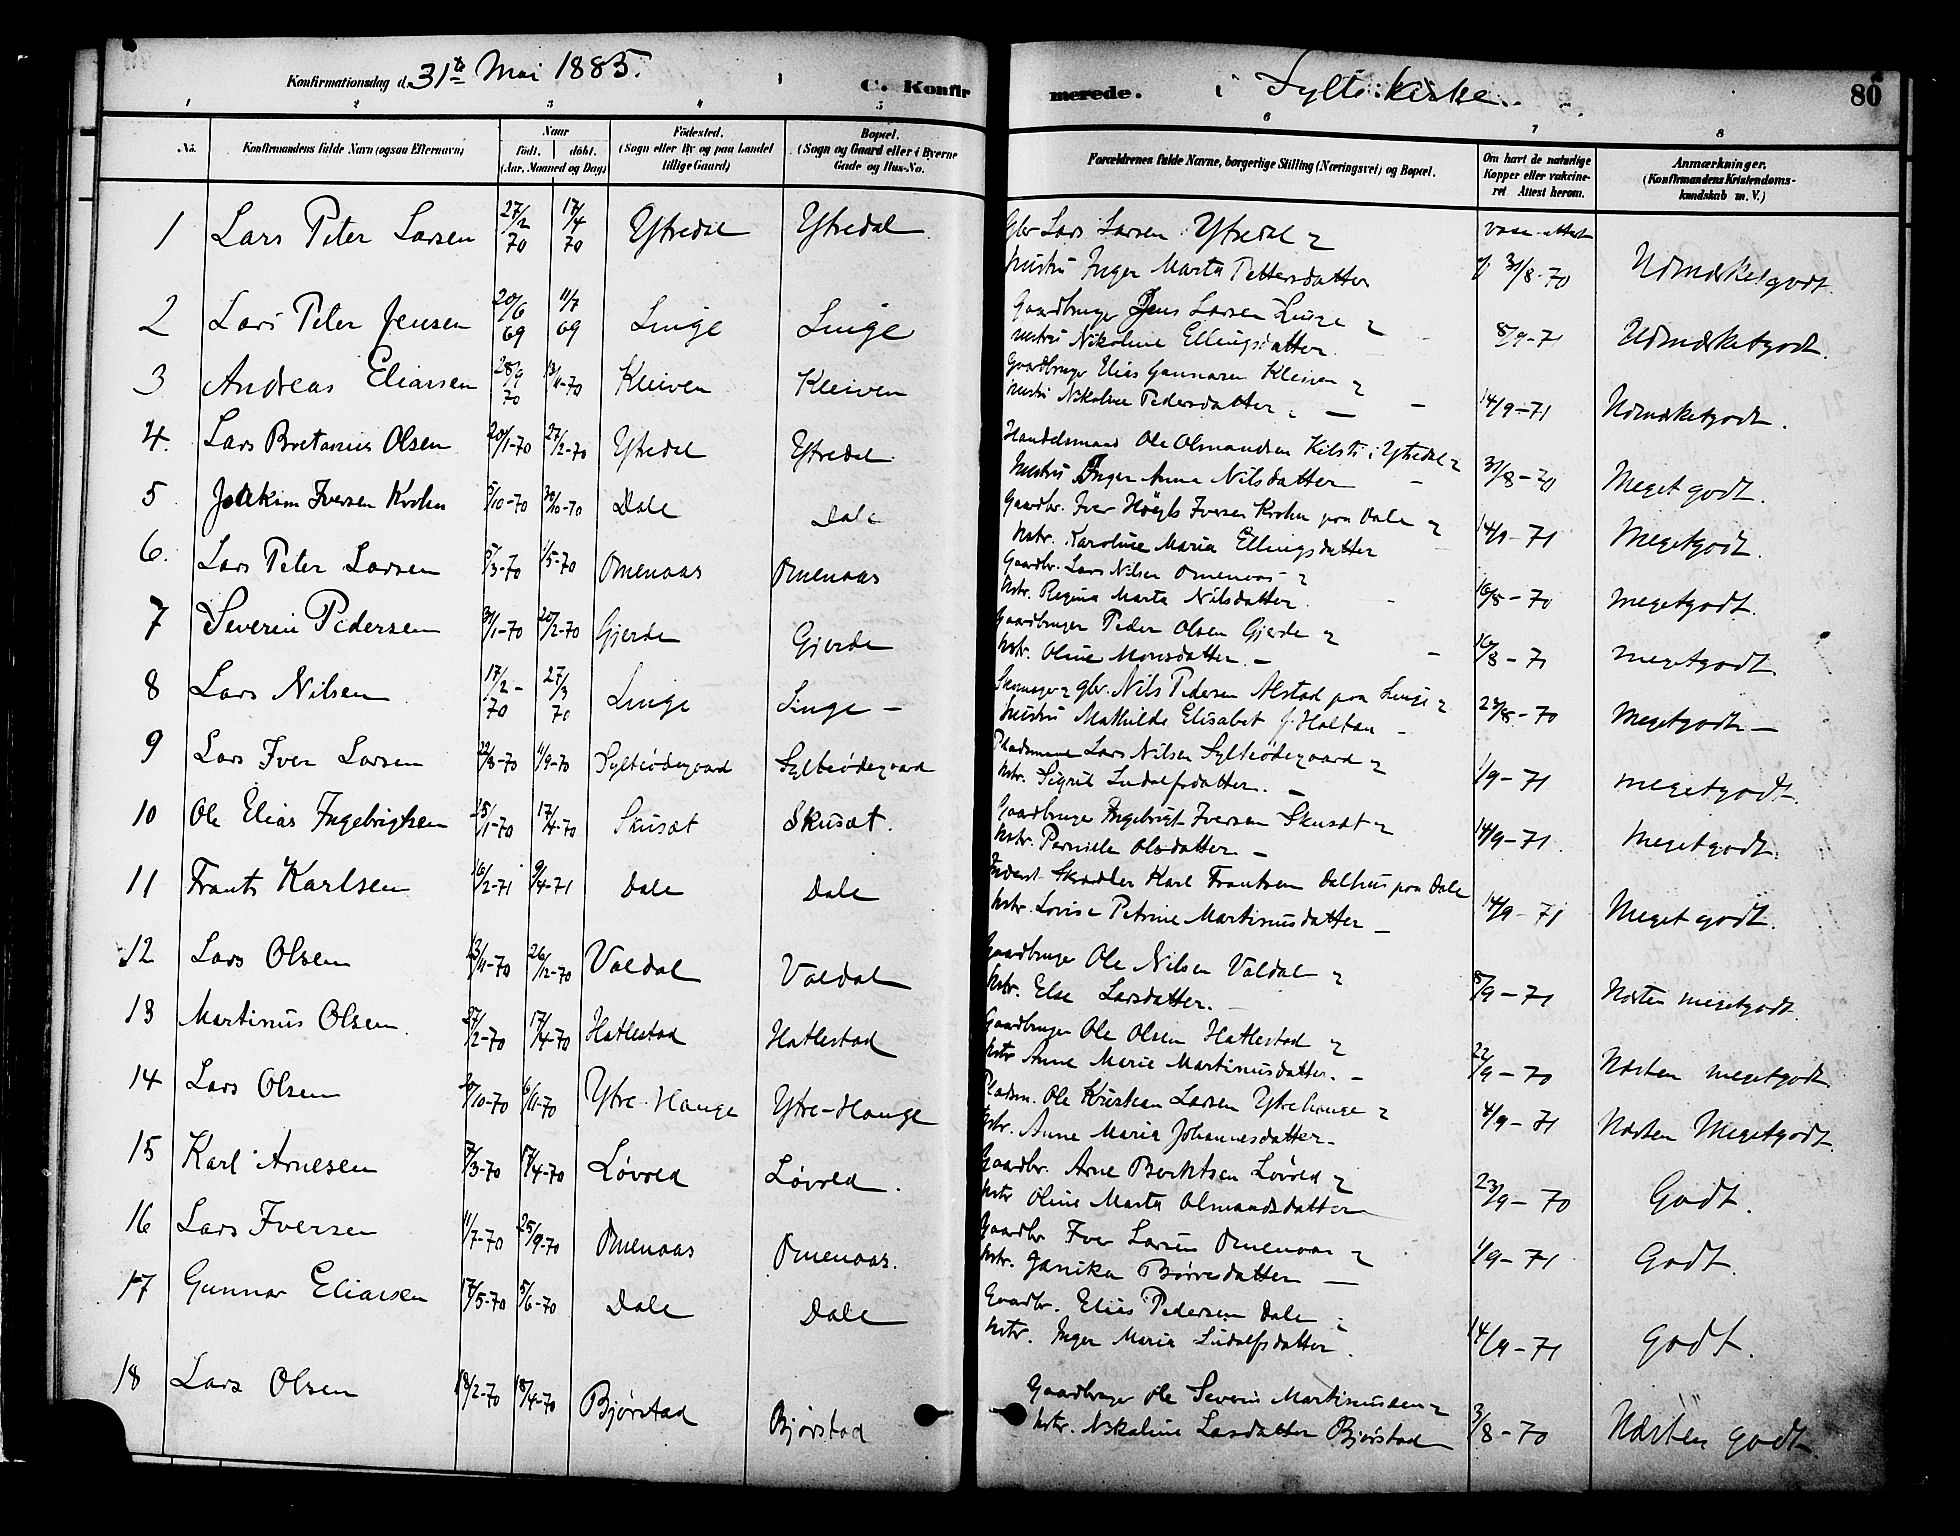 Konfirmationsdag d. 31te Mai 1885. C. Konfirmerede. i Sylte kirke. 80
1 2 3 4 5 6 7 8
No. Konfirmandens fulde Navn (ogsaa Efternavn) Naar født. døbt. (Aar, Maaned og Dag) Fødested. (Sogn eller By og paa Landet tillige Gaard) Bopæl. (Sogn og Gaard eller i Byerne Gade og Hus-No. Forældrenes fulde Navne, borgerlige Stilling (Næringsvei) og Bopæl. Om havt de naturlige Kopper eller vakcineret. Attest herom. Anmærkninger. (Konfirmandens Kristendomskundskab m. V.)
1 Lars Peter Larsen 27/2 70 17/4 70 Ytredal Ytredal Gbr Lars Larsen Ytredal
Hustru Inger Marta Pettersdatter vacc. attest 31/8-70 Udmærketgodt.
2 Lars Peter Jensen 20/6 69 11/7 69 Linge Linge Gaardbruger Jens Larsen Linge
Hustru Nikoline Ellingsdatter. 8/9-71 Udmærketgodt.
3 Andreas Eliassen 28/9 70 13/11-70 Kleiven Kleiven Gaardbruger Elias Gunnarsen Kleiven
Hustru Nikoline Pedersdatter 14/9-71 Udmærketgodt.
4. Lars Bretanus Olsen 20/1-70 27/2-70 Ytredal Ytredal Handelsmand Ole Olmandsen Kilsti i Ytredal
Hustru Inger Anna Nilsdatter 31/8-70 Meget godt.
5 Joakim Iversen Krohn 5/10-70 30/10-70 Dale Dale Gaardbr. Iver Høyls Iversen Krohn paa Dale
Hstr. Karoline Maria Ellingsdatter 14/9-71 Megetgodt.
6. Lars Peter Larsen 5/3-70 1/5-70 Omenaas Omenaas Gaardbr. Lars Nilsen Omenaas
Hstr. Regina Marta Nilsdatter. 16/8-70 megetgodt.
7 Severin Pedersen 31/1-70 20/2-70 Gjerde Gjerde Gaardbruger Peder Olsen Gjerde
Hstr. Oline Monsdatter. 16/8-71 megetgodt.
8 Lars Nilsen 17/2-70 27/3 70 Linge Linge Nils Pedersen Alstad paa Linge
Hustru Mathilde Elisabet f. Holtan 23/8-70 Megetgodt
9 Lars Iver Larsen 22/8-70 11/9-70 Sylteødegaard Sylteødegaard Pladsmand Lars Nilsen Sylteødegaard
Hstr. Sigrid Ludolfsdatter. 1/9-71 megetgodt.
10 Ole Elias Ingebrigtsen 25/1-70 17/4-70 Skusæt Skusæt. Gaardbruger Ingebrigt Iversen Skusæt
Hstr. Pernille Olsdatter 14/9-71. Megetgodt.
11 Frants Karlsen 16/2-71 9/4-71 Dale Dale Inderst Skrædder Karl Frantsen Dalhus paa Dale
Hstr. Lovise Petrine Martinusdatter 14/9-71 Meget godt.
12 Lars Olsen 13/11-70 26/12-70 Valdal Valdal Gaardbruger Ole Nilsen Valdal
Hstr. Else Larsdatter. 8/9-71 Næsten megetgodt.
13 Martinus Olsen. 27/2-70 17/4-70 Hatlestad Hatlestad Gaardbruger Ole Olsen Hatlestad
Hstr Anne Marie Martinusdatter. 22/9-70 Næsten megetgodt
14 Lars Olsen 20/10-70 6/11-70 Ytre-Hauge Ytre-Hauge Pladsm. Ole Kristian Larsen Ytrehauge
Hstr. Anne Maria Johannesdatter 4/9-71 Næsten Megetgodt.
15 Karl Arnesen 7/3-70 17/4-70 Løvold Løvold. Gaardbr. Arne Berktsen Løvold
Hstr Oline Marta Olmandsdatter 23/9-70 Godt.
16 Lars Iversen 11/7-70 25/9-70 Omenaas Omenaas. Gaardbr Iver Larsen Omenaas
Hstr. Janika Børresdatter 1/9-71 Godt.
17 Gunnar Eliassen 17/5-70 5/6-70 Dale Dale Gaardbr. Elias Pedersen Dale
Hstr. Inger Maria Ludolfsdatter. 14/9-71 godt.
18 Lars Olsen 18/2-70 18/4-70 Bjørstad Bjørstad Gaardbruger Ole Severin Martinussen
Hstr. Nikoline Lasdatter Bjørstad 3/8-70 Næsten godt